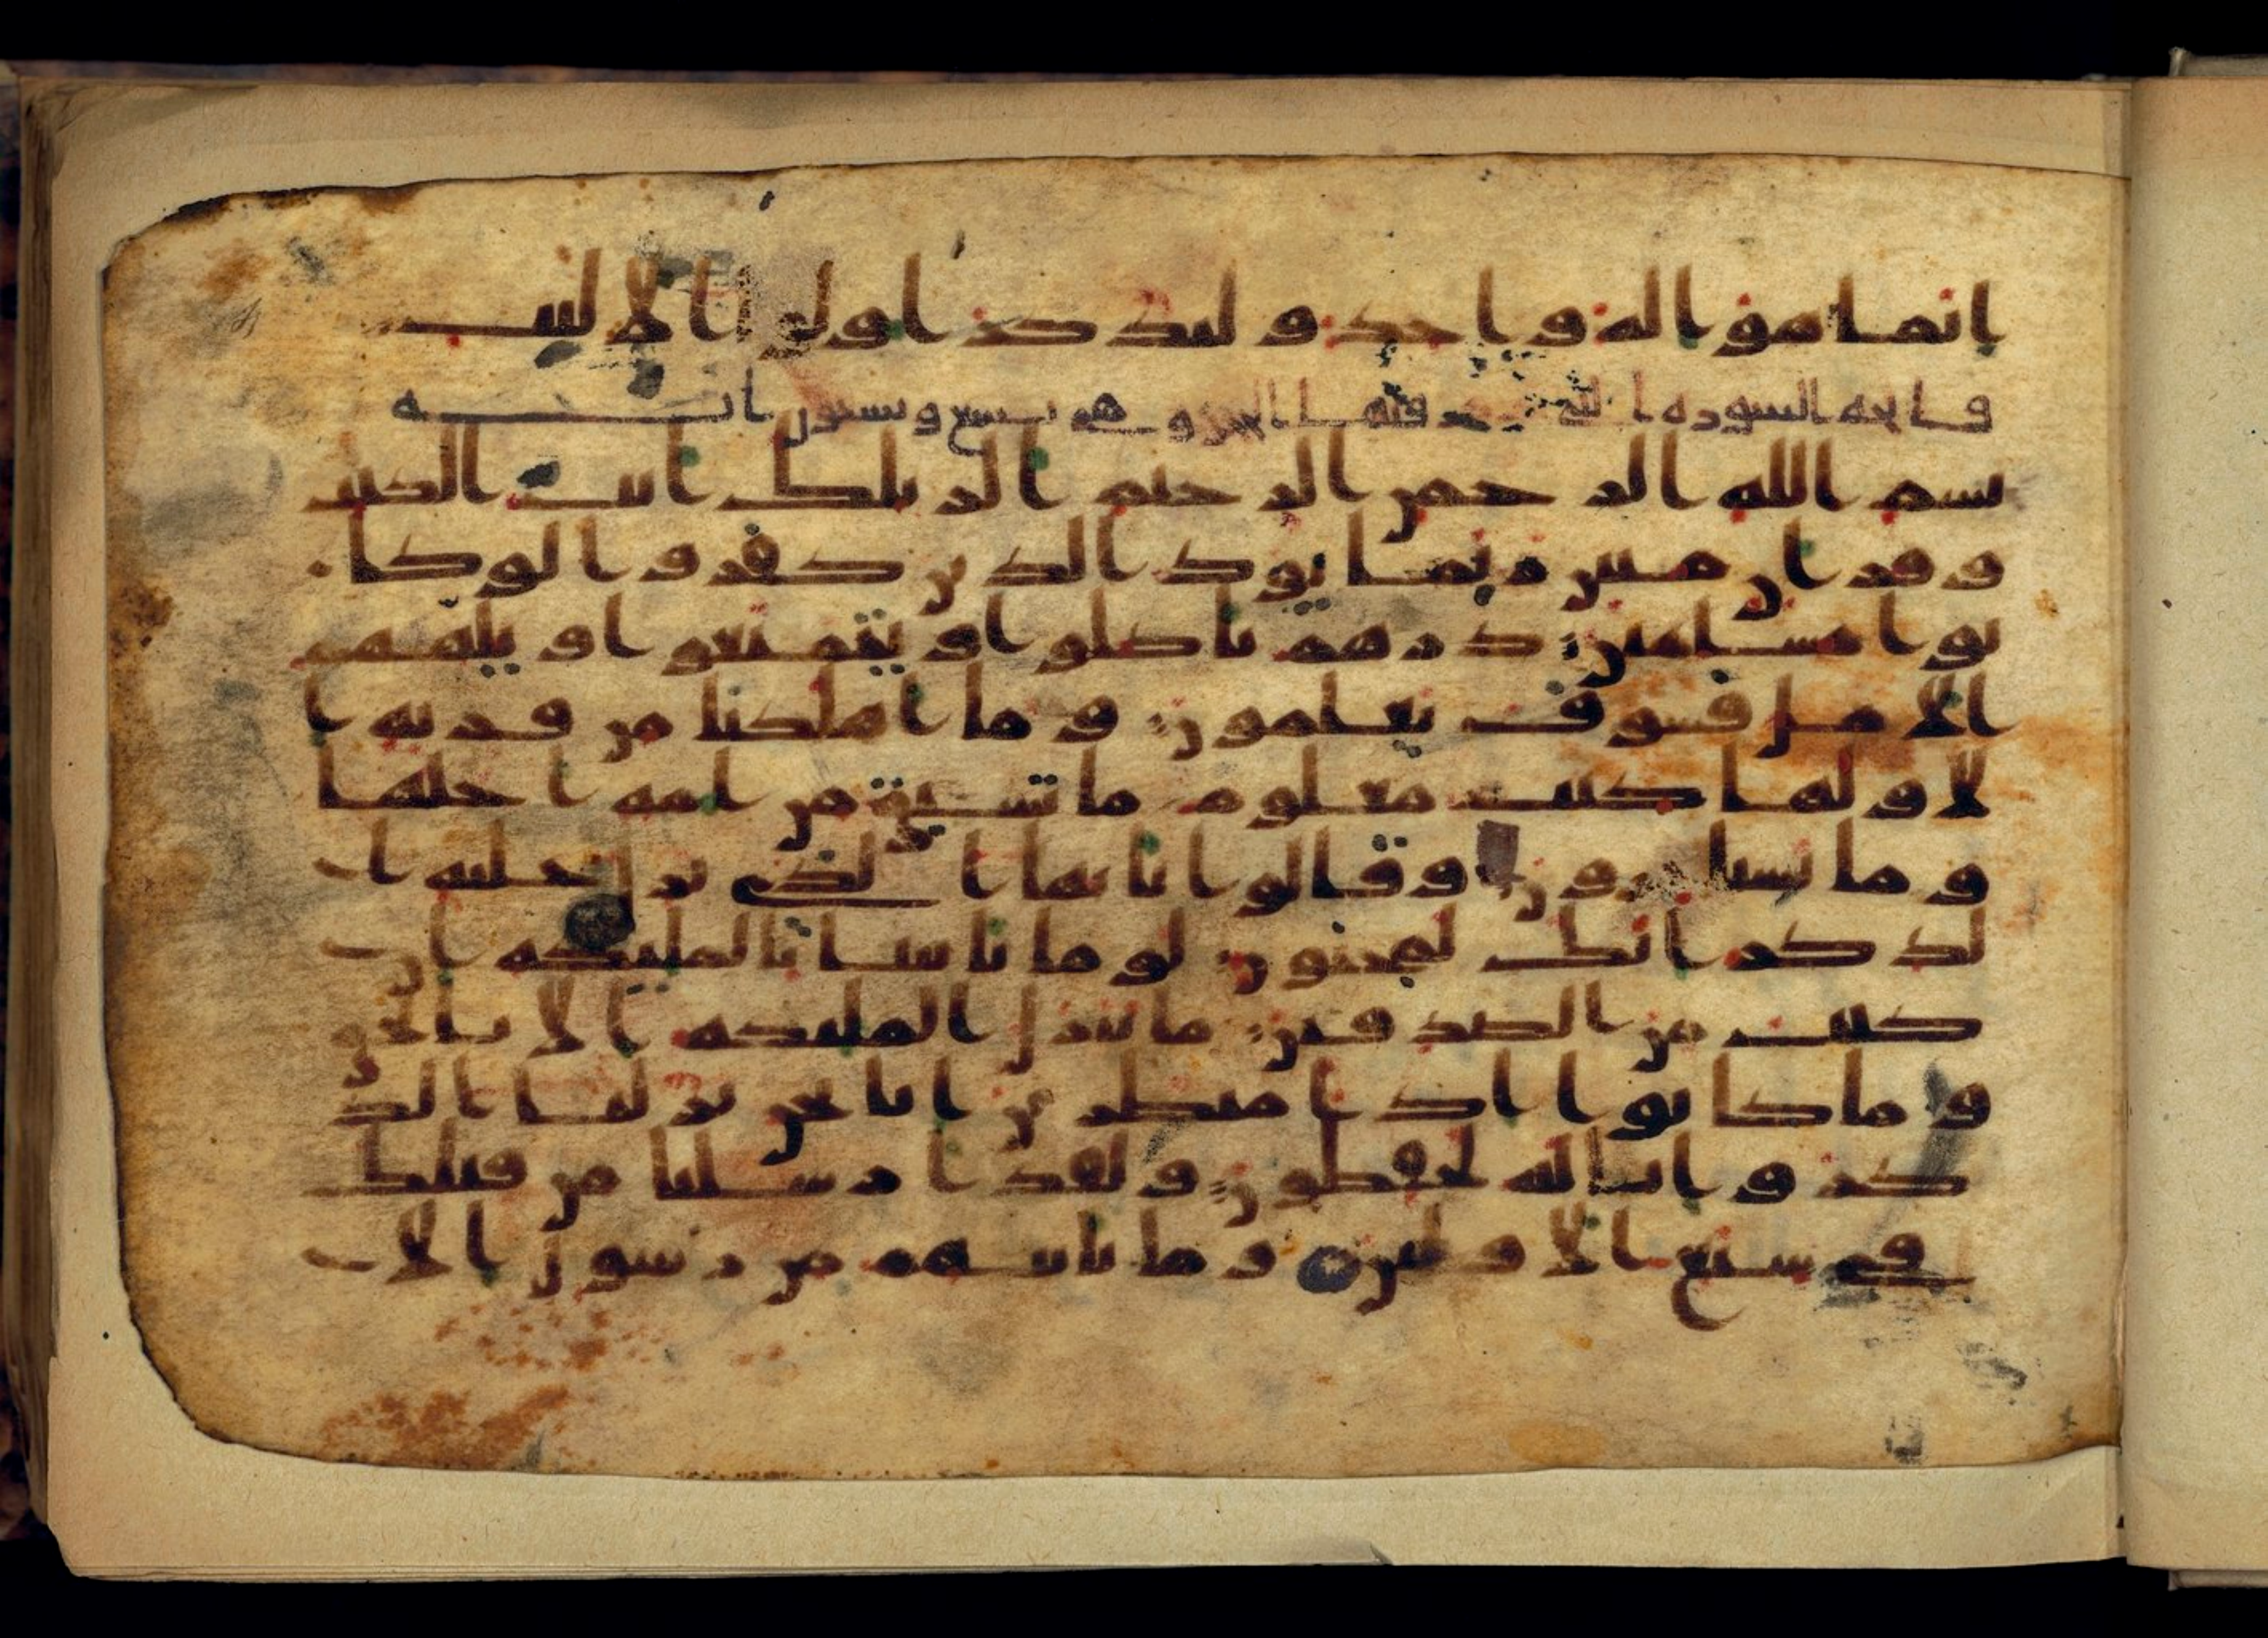 انما هو اله واحد وليذكر اولوا الالبب
فاتحه السوره التي فيها الحجر وهي تسع وتسعون ايه
بسم الله الرحمن الرحيم الر تلك ايت الكتب
وقران مبين ربما يود الذين كفروا لو كا
نوا مسلمين ذرهم ياكلوا ويتمتعوا ويلههم
الامل فسوف يعلمون وما اهلكنا من قريه ا
لا ولها كتب معلوم ما تسبق من امه اجلها
وما يستخرون وقالوا يايها الذي نزل عليه ا
لذكر انك لمجنون لو ما تاتينا بالمليكه ان
كنت من الصدقين ما ننزل المليكه الا بالحق
وما كانوا اذا منظرين انا نحن نزلنا الذ
كر وانا له لحفظون ولقد ارسلنا من قبلك
في شيع الاولين وما ياتيهم من رسول الا